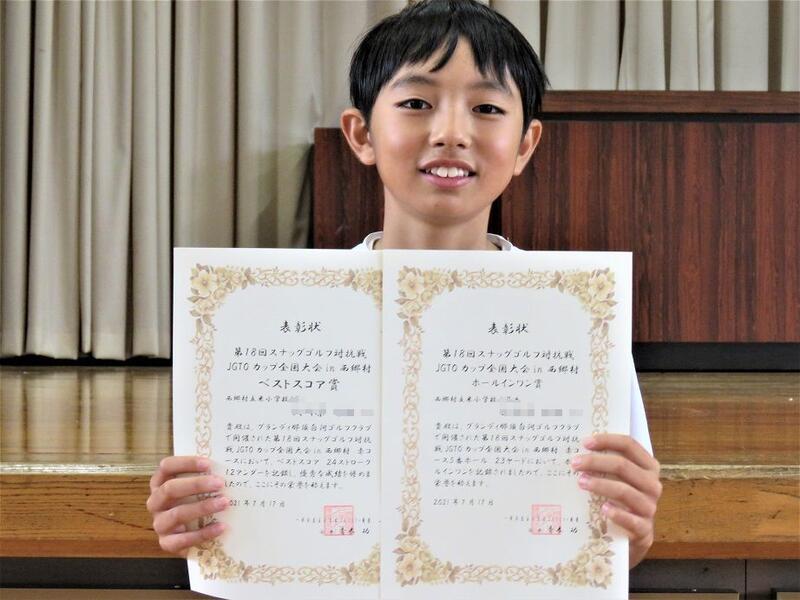 表彰状
第18回スナッグゴルフ対抗戦
JGTOカップ全国大会 in 西郷村
ベストスコア賞
西郷村立米小学校
貴殿は、グランディ那須白河ゴルフクラブ
で開催された第18回スナッグゴルフ対抗
戦JGTOカップ全国大会 in 西郷村 赤コ
ースにおいて、ベストスコア 24ストローク
12アンダーを記録し、優秀な成績を修めま
したので、ここにその栄誉を称えます。
2021年7月17日
表彰状
第18回スナッグゴルフ対抗戦
JGTOカップ全国大会 in 西郷村
ホールインワン賞
西郷村立米小学校
貴殿は、グランディ那須白河ゴルフクラブ
で開催された第18回スナッグゴルフ対抗
戦JGTOカップ全国大会 in 西郷村 赤コ
ース5番ホール 23ヤードにおいて、ホー
ルインワンを記録されましたので、ここにその
栄誉を称えます。
2021年7月17日